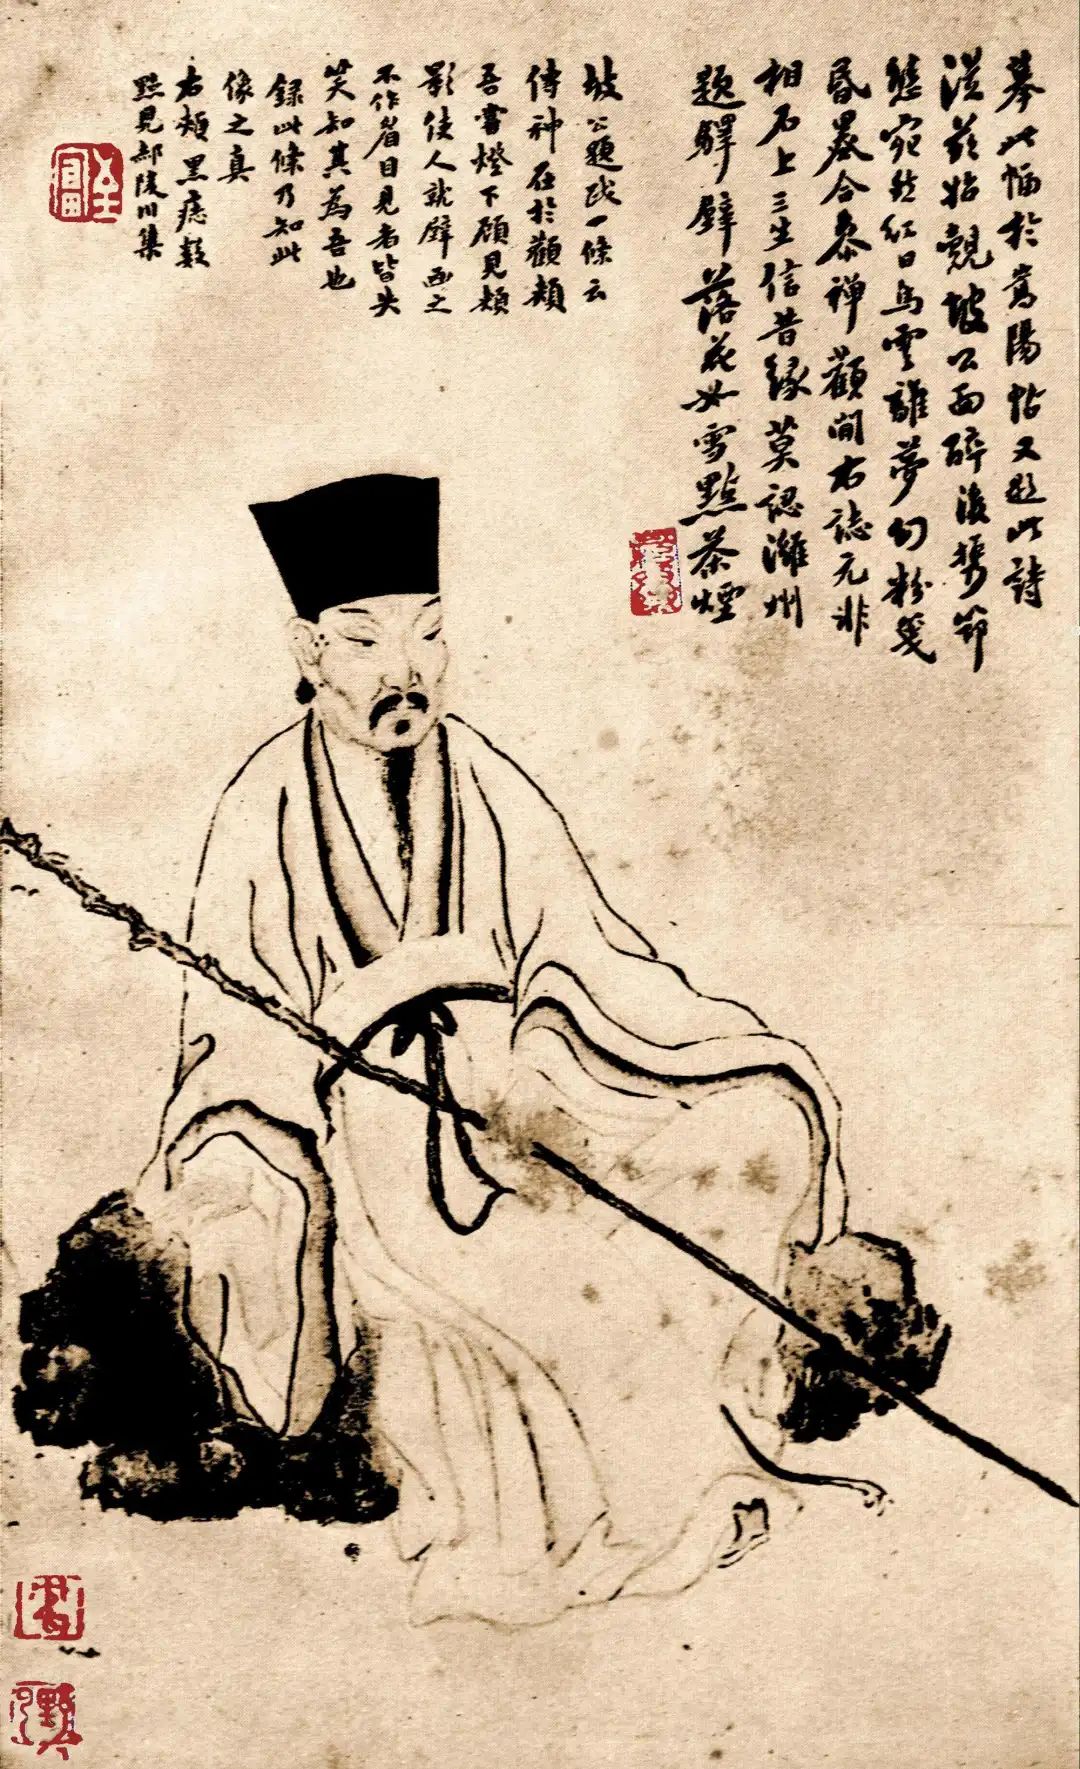 摹此幅於嵩陽帖又題此詩
從茲始覿坡公面醉後攜筇
態宛然紅日烏雲離夢句粉箋
昏暮合參禪觀間右誌元非
相石上三生信昔緣莫認濰州
題驛壁落花如雪點茶煙
坡公題跋一條云
傳神在於顴頰
吾嘗燈下顧見頰
影使人就壁画之
不作眉目見者皆失
笑知其為吾也
錄此條乃知此
像之真
右頰黑痣數
點見郝陵川集